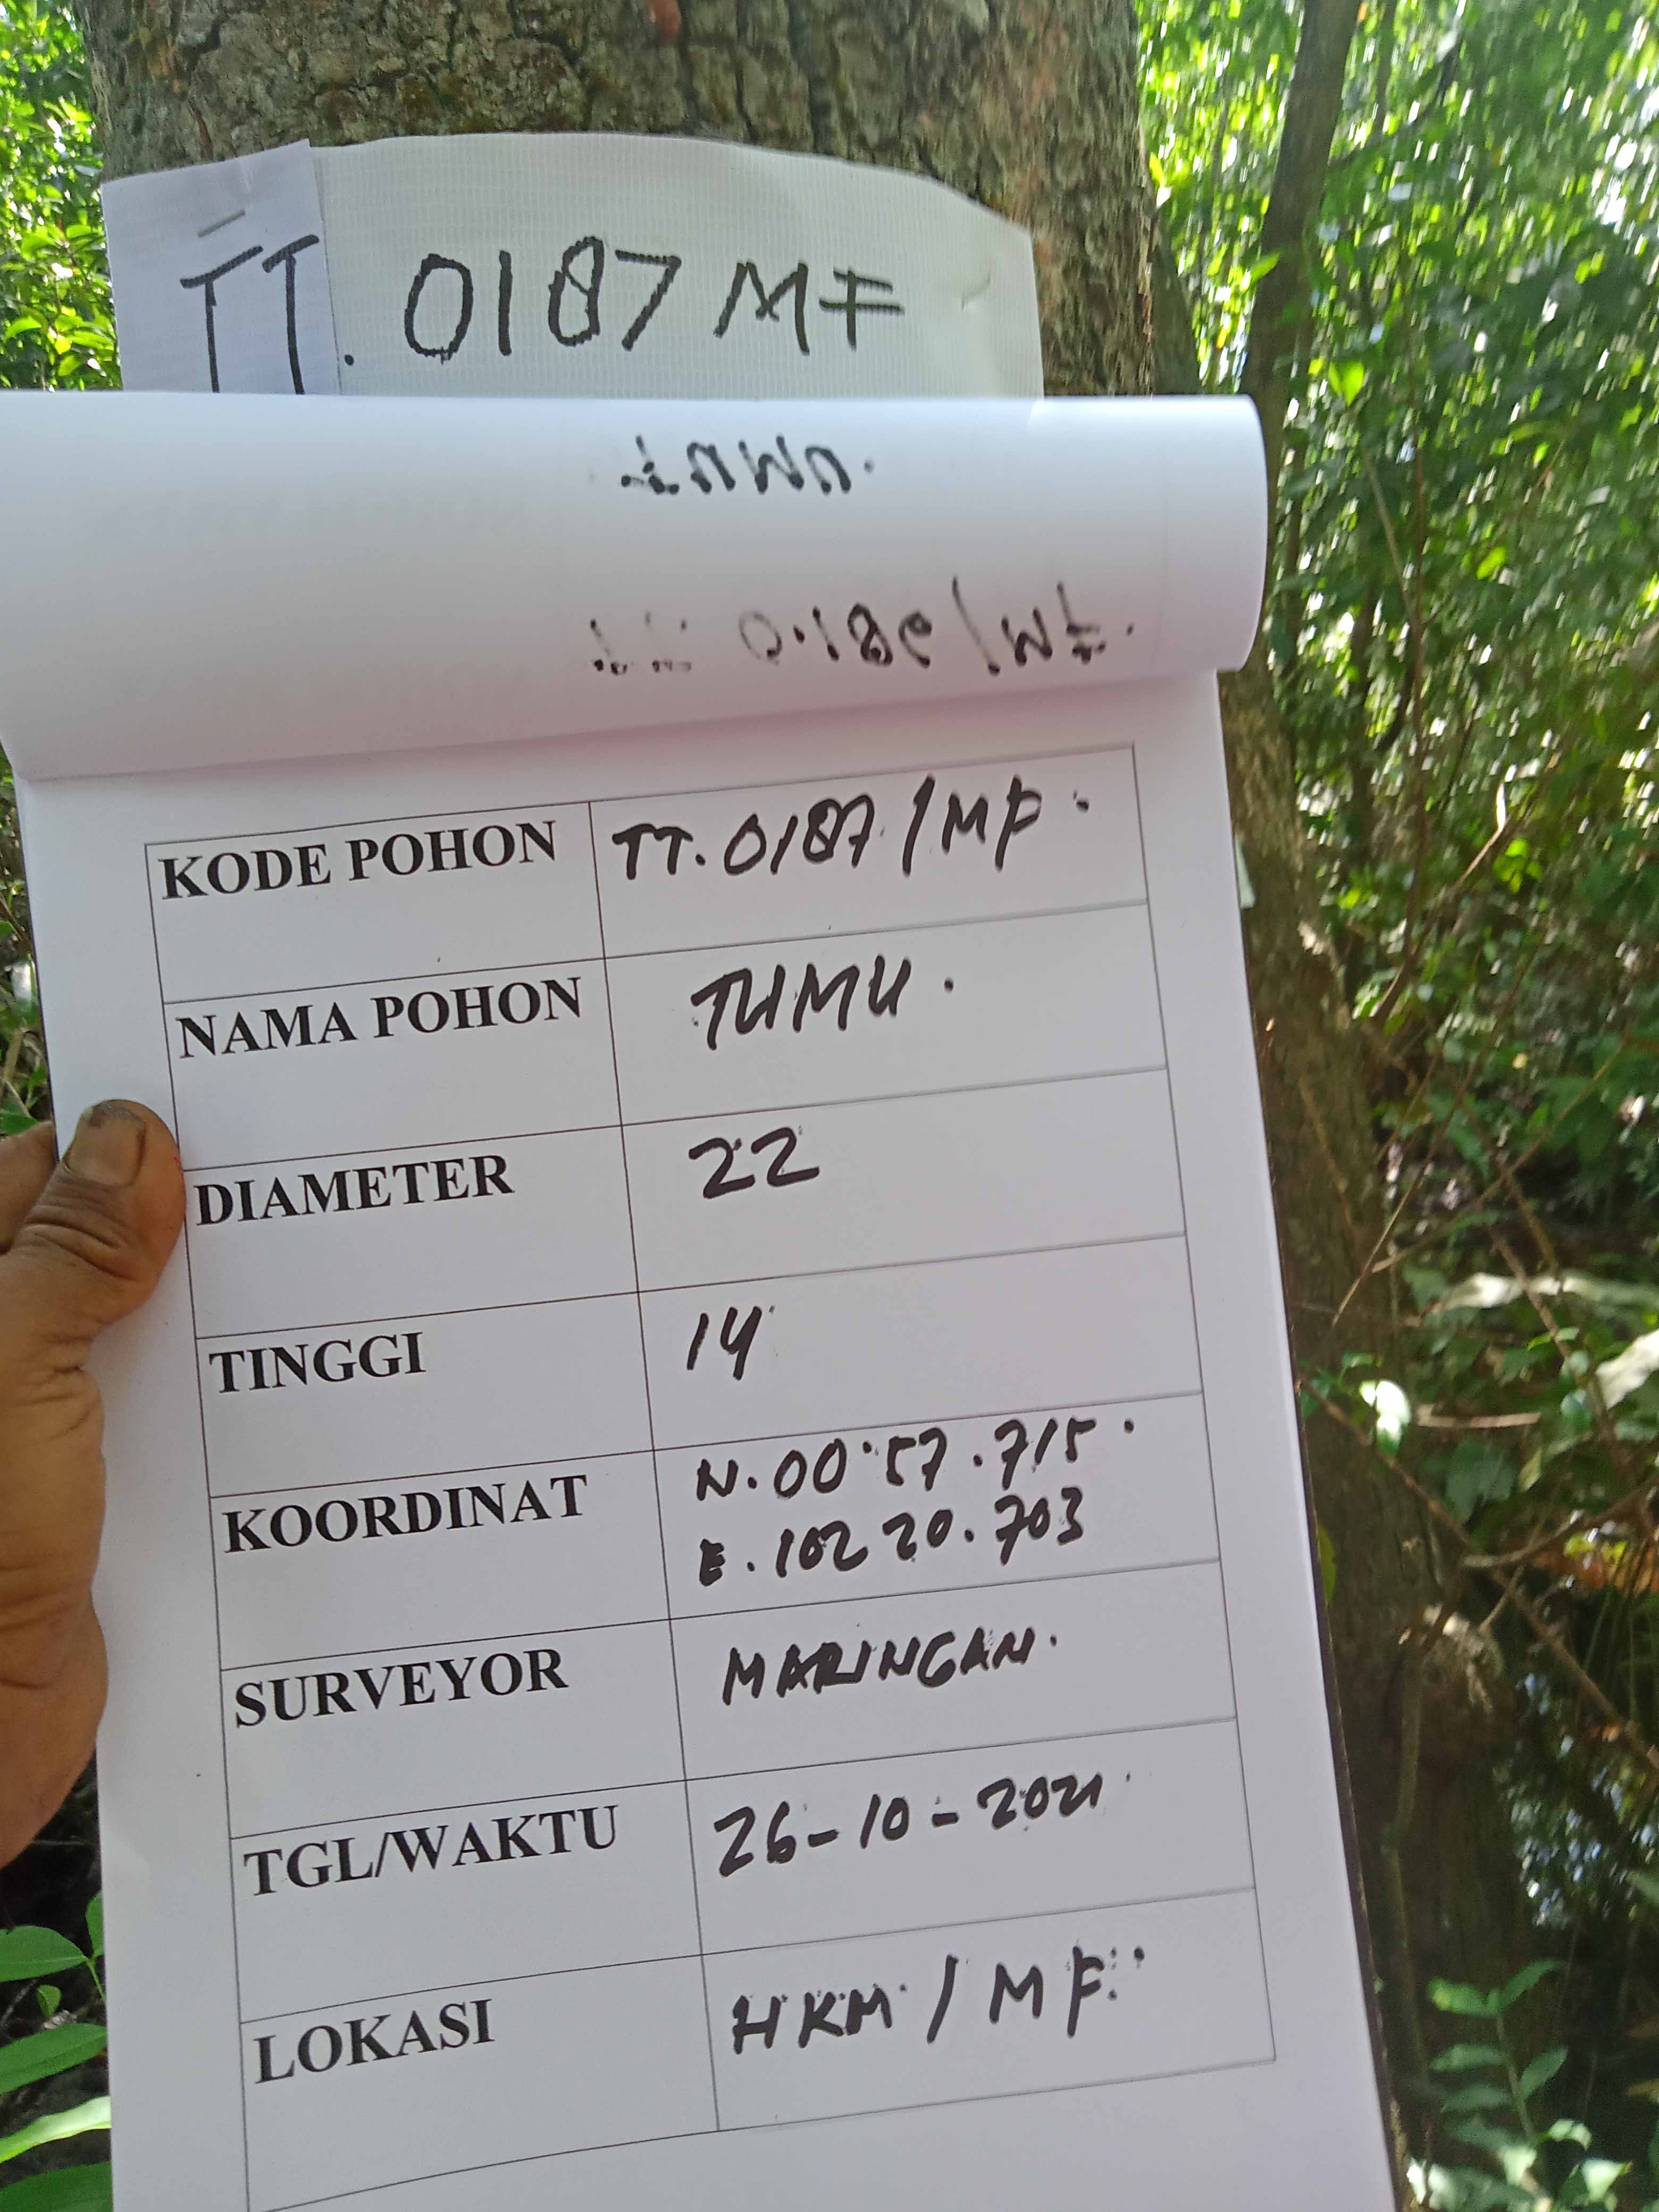 TT. 0187 MF
KODE POHON TT. 0187 / MF.
NAMA POHON TUMU.
DIAMETER 22
TINGGI 14
KOORDINAT N. 00.57.715.
E. 102 20.703
SURVEYOR MARINGAN.
TGL/WAKTU 26-10-2021
LOKASI HKM / MF.